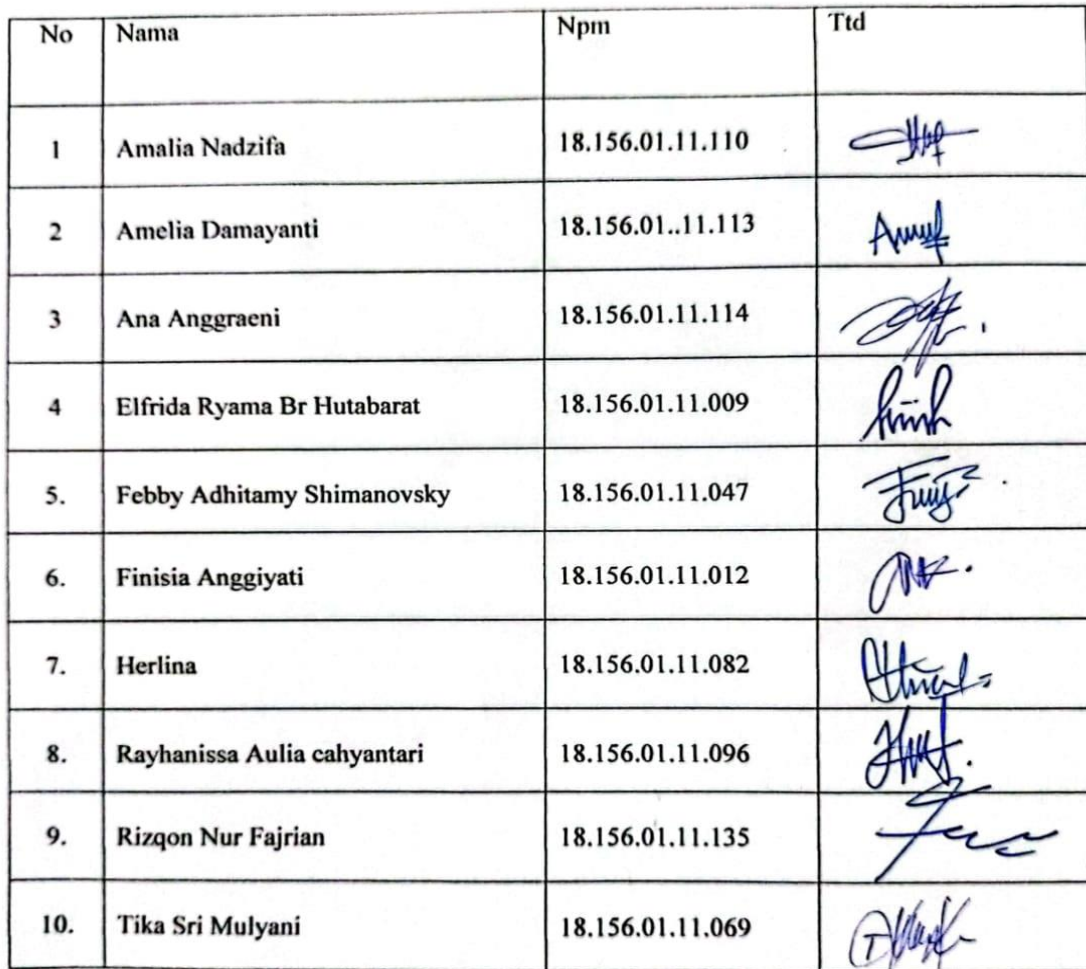 No Nama Npm Ttd
1 Amalia Nadzifa 18.156.01.11.110
2 Amelia Damayanti 18.156.01..11.113
3 Ana Anggraeni 18.156.01.11.114
4 Elfrida Ryama Br Hutabarat 18.156.01.11.009
5. Febby Adhitamy Shimanovsky 18.156.01.11.047
6. Finisia Anggiyati 18.156.01.11.012
7. Herlina 18.156.01.11.082
8. Rayhanissa Aulia cahyantari 18.156.01.11.096
9. Rizqon Nur Fajrian 18.156.01.11.135
10. Tika Sri Mulyani 18.156.01.11.069